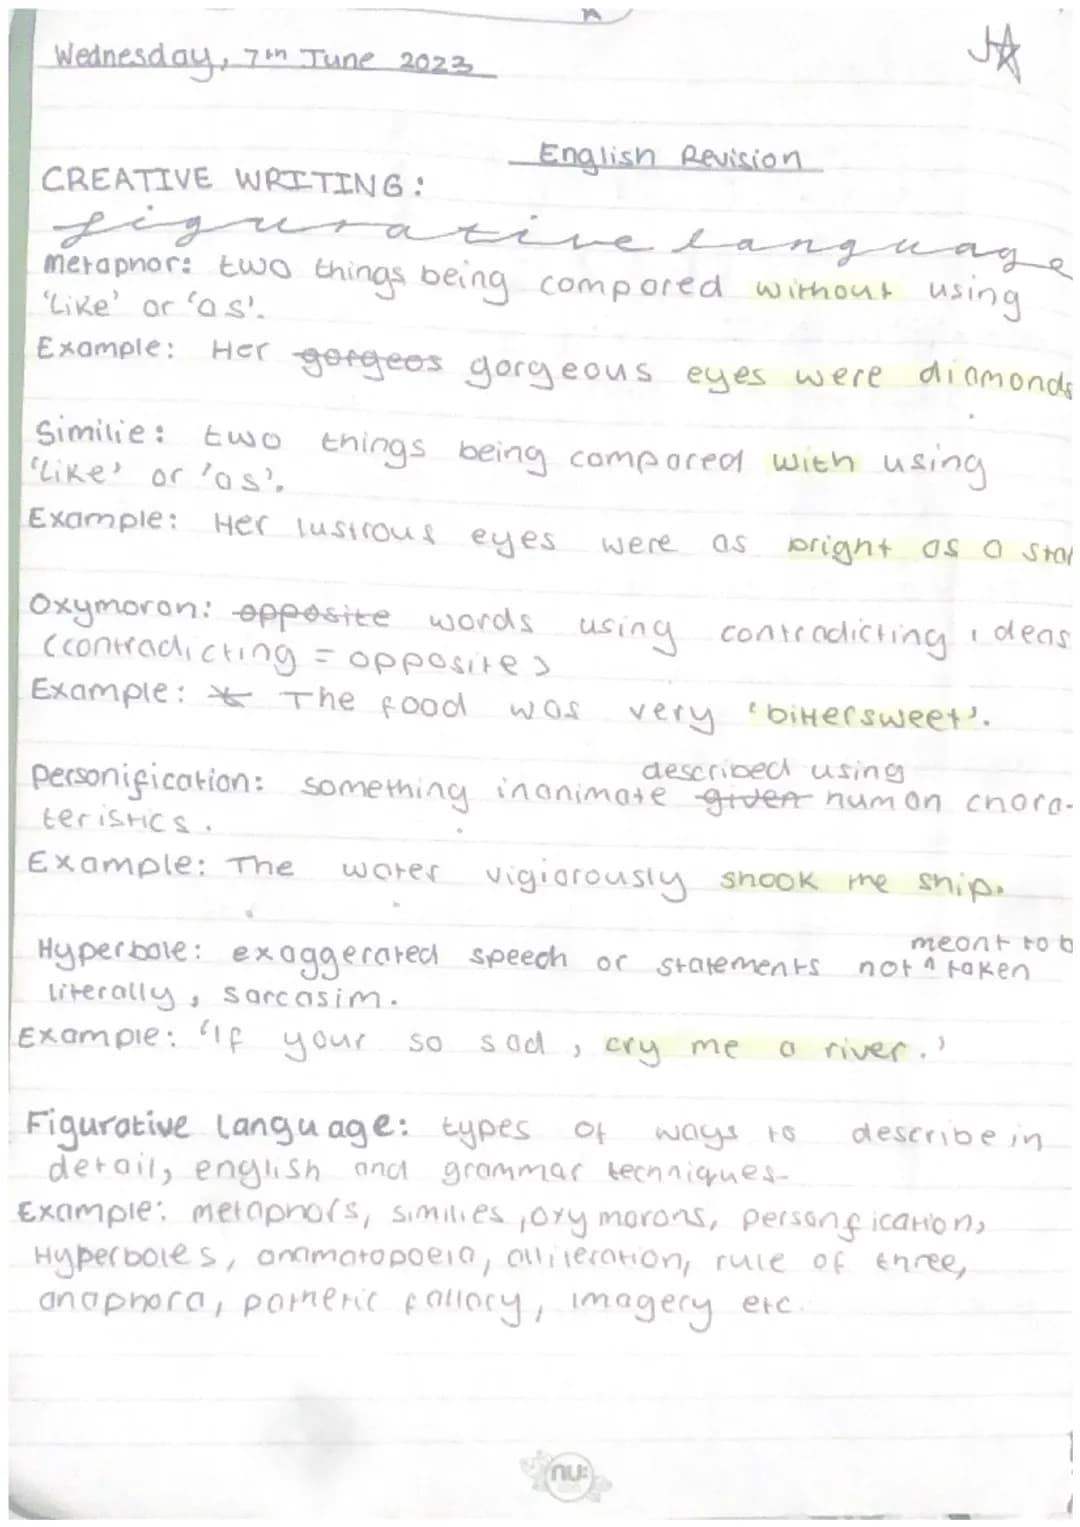 Wednesday, 7th June 2023
English Revision
CREATIVE WRITING:
figurative language
Metaphor: two things being compared without using
'Like' or 'as'.
Example: Her gorgeos gorgeous eyes were diamonds
Similie: two things being compared with using
'Like' or 'as'.
Example: Her lustrous eyes were as bright as a star
Oxymoron: opposite words using contradicting ideas
(contradicting = opposite)
Example: The food was very 'bittersweet'.
described using
Personification: something inanimate given human chara-
teristics.
Example: The water vigiorously shook the ship.
meant to b
Hyperbole: exaggerated speech or statements not ^ taken
literally, sarcasim.
Example: "If your so sad, cry me a river.'
Figurative Language: types of ways to describe in
detail, english and grammar techniques-
Example: metaphors, similies, oxymorons, personfication,
Hyperboles, onmmatopoeia, alliteration, rule of three,
anaphora, pathetic fallacy, imagery etc.
nu: